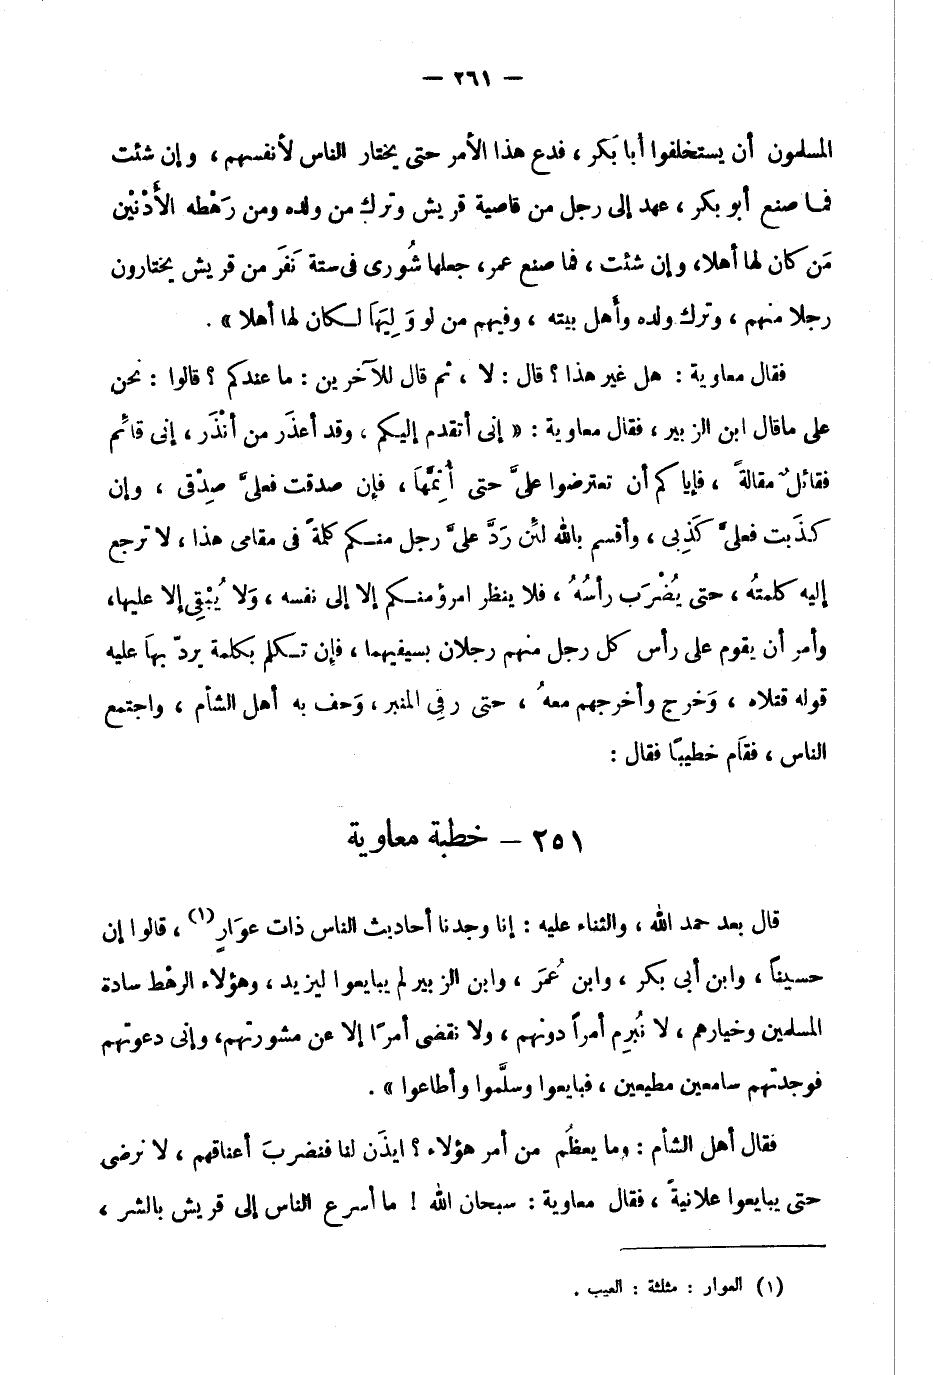 — ٢٦١ —
المسلمون أن يستخلفوا أبا بَكر ، فدع هذا الأمر حتى يختار الناس لأنفسهم ، وإن شئت
فما صنع أبو بكر ، عهد إلى رجل من قاصية قريش وترك من ولده ومن رَهْطه الأَدْنَيْن
مَن كان لها أهلا، وإن شئت ، فما صنع عمر، جعلها شُورى فى ستة نَفَر من قريش يختارون
رجلا منهم ، وترك ولده وأَهل بيته ، وفيهم من لو وَلِيَهَا لكان لها أهلا » .
فقال معاوية : هل غير هذا ؟ قال : لا ، ثم قال للآخرين : ما عندكم ؟ قالوا : نحن
على ماقال ابن الزبير ، فقال معاوية : « إنى أتقدم إليكم ، وقد أعذَر من أنْذَر ، إنى قائم
فقائلٌ مقالةً ، فإياكم أن تعترضوا علىَّ حتى أُتِمَّهَا ، فإن صدقت فعلىَّ صِدْقى ، وإن
كذَبت فعلىَّ كَذِبى ، وأقسم بالله لئن رَدَّ علىَّ رجل منكم كلمةً فى مقامى هذا ، لا ترجع
إليه كلمتهُ ، حتى يُضْرَب رأسُهُ ، فلا ينظر امرؤ منكم إلا إلى نفسه ، وَلا يُبْقِى إلا عليها،
وأمر أن يقوم على رأس كل رجل منهم رجلان بسيفيهما ، فإن تكلم بكلمة يردّ بهَا عليه
قوله قتلاه ، وَخرج وأخرجهم معهُ ، حتى رقِى المنبر ، وَحف به أهل الشأم ، واجتمع
الناس ، فقاَم خطيبًا فقال :
٢٥١ — خطبة معاوية
قال بعد حمد الله ، والثناء عليه : إنا وجدنا أحاديث الناس ذات عوَارٍ (١) ، قالوا إن
حسيناً ، وابن أبى بكر ، وابن عُمَرَ ، وابن الزبير لم يبايعوا ليزيد ، وهؤلاء الرهْط سادة
المسلمين وخيارهم ، لا نُبرِم أمراً دونهم ، ولا نقضى أمرًا إلا عن مشورتهم، وإنى دعوتهم
فوجدتهم سامعين مطيعين ، فبايعوا وسلَّموا وأطاعوا » .
فقال أهل الشأم : وما يعظُم من أمر هؤلاء ؟ ايذَن لنا فنضربَ أعناقهم ، لا نرضى
حتى يبايعوا علانيةً ، فقال معاوية : سبحان الله ! ما أسرع الناس إلى قريش بالشر ،
(١) العوار : مثلثة : العيب .